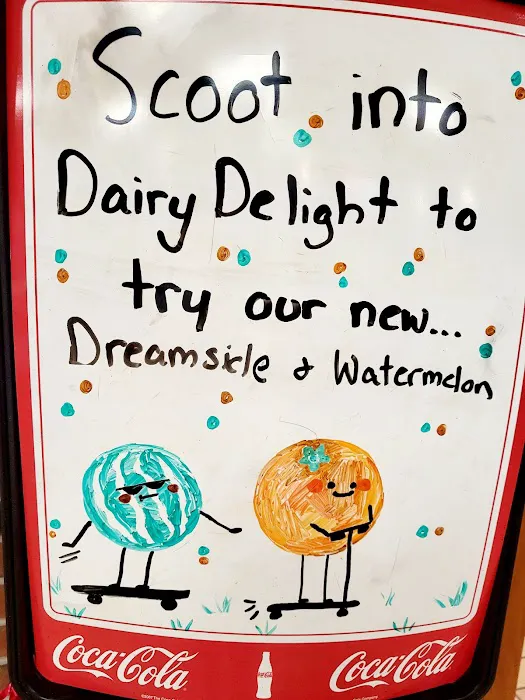 Scoot into
Dairy Delight to
try our new...
Dreamsicle & Watermelon
Coca-Cola
Coca-Cola